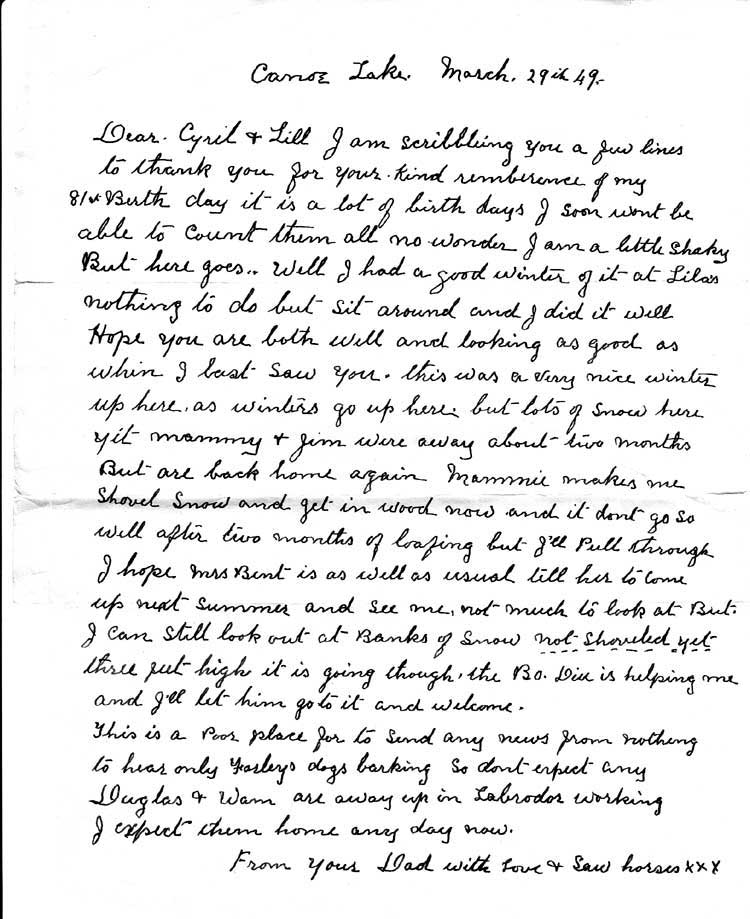 Canoe Lake. March. 29th 49.
Dear. Cyril & Lill I am scribbling you a few lines
to thank you for your kind remberence of my
81st Birth day it is a lot of birth days I soon wont be
able to count them all no wonder I am a little shaky
But here goes.. Well I had a good winter of it at Lilas
nothing to do but sit around and I did it well
Hope you are both well and looking as good as
when I last saw you. this was a very nice winter
up here, as winters go up here; but lots of snow here
yet mammy & Jim were away about two months
But are back home again Mammie makes me
shovel snow and get in wood now and it dont go so
well after two months of loafing but I'll Pull through
I hope Mrs Bent is as well as usual tell her to come
up next summer and see me, not much to look at But.
I can still look out at Banks of snow not shoveled yet
three feet high it is going though, the Bo. Diu is helping me
and I'll let him go to it and welcome.
This is a Poor place for to send any news from nothing
to hear only Farleys dogs barking so dont expect any
Duglas & Wam are away up in Labrodor working
I expect them home any day now.
From Your Dad with love & Saw horses xxx